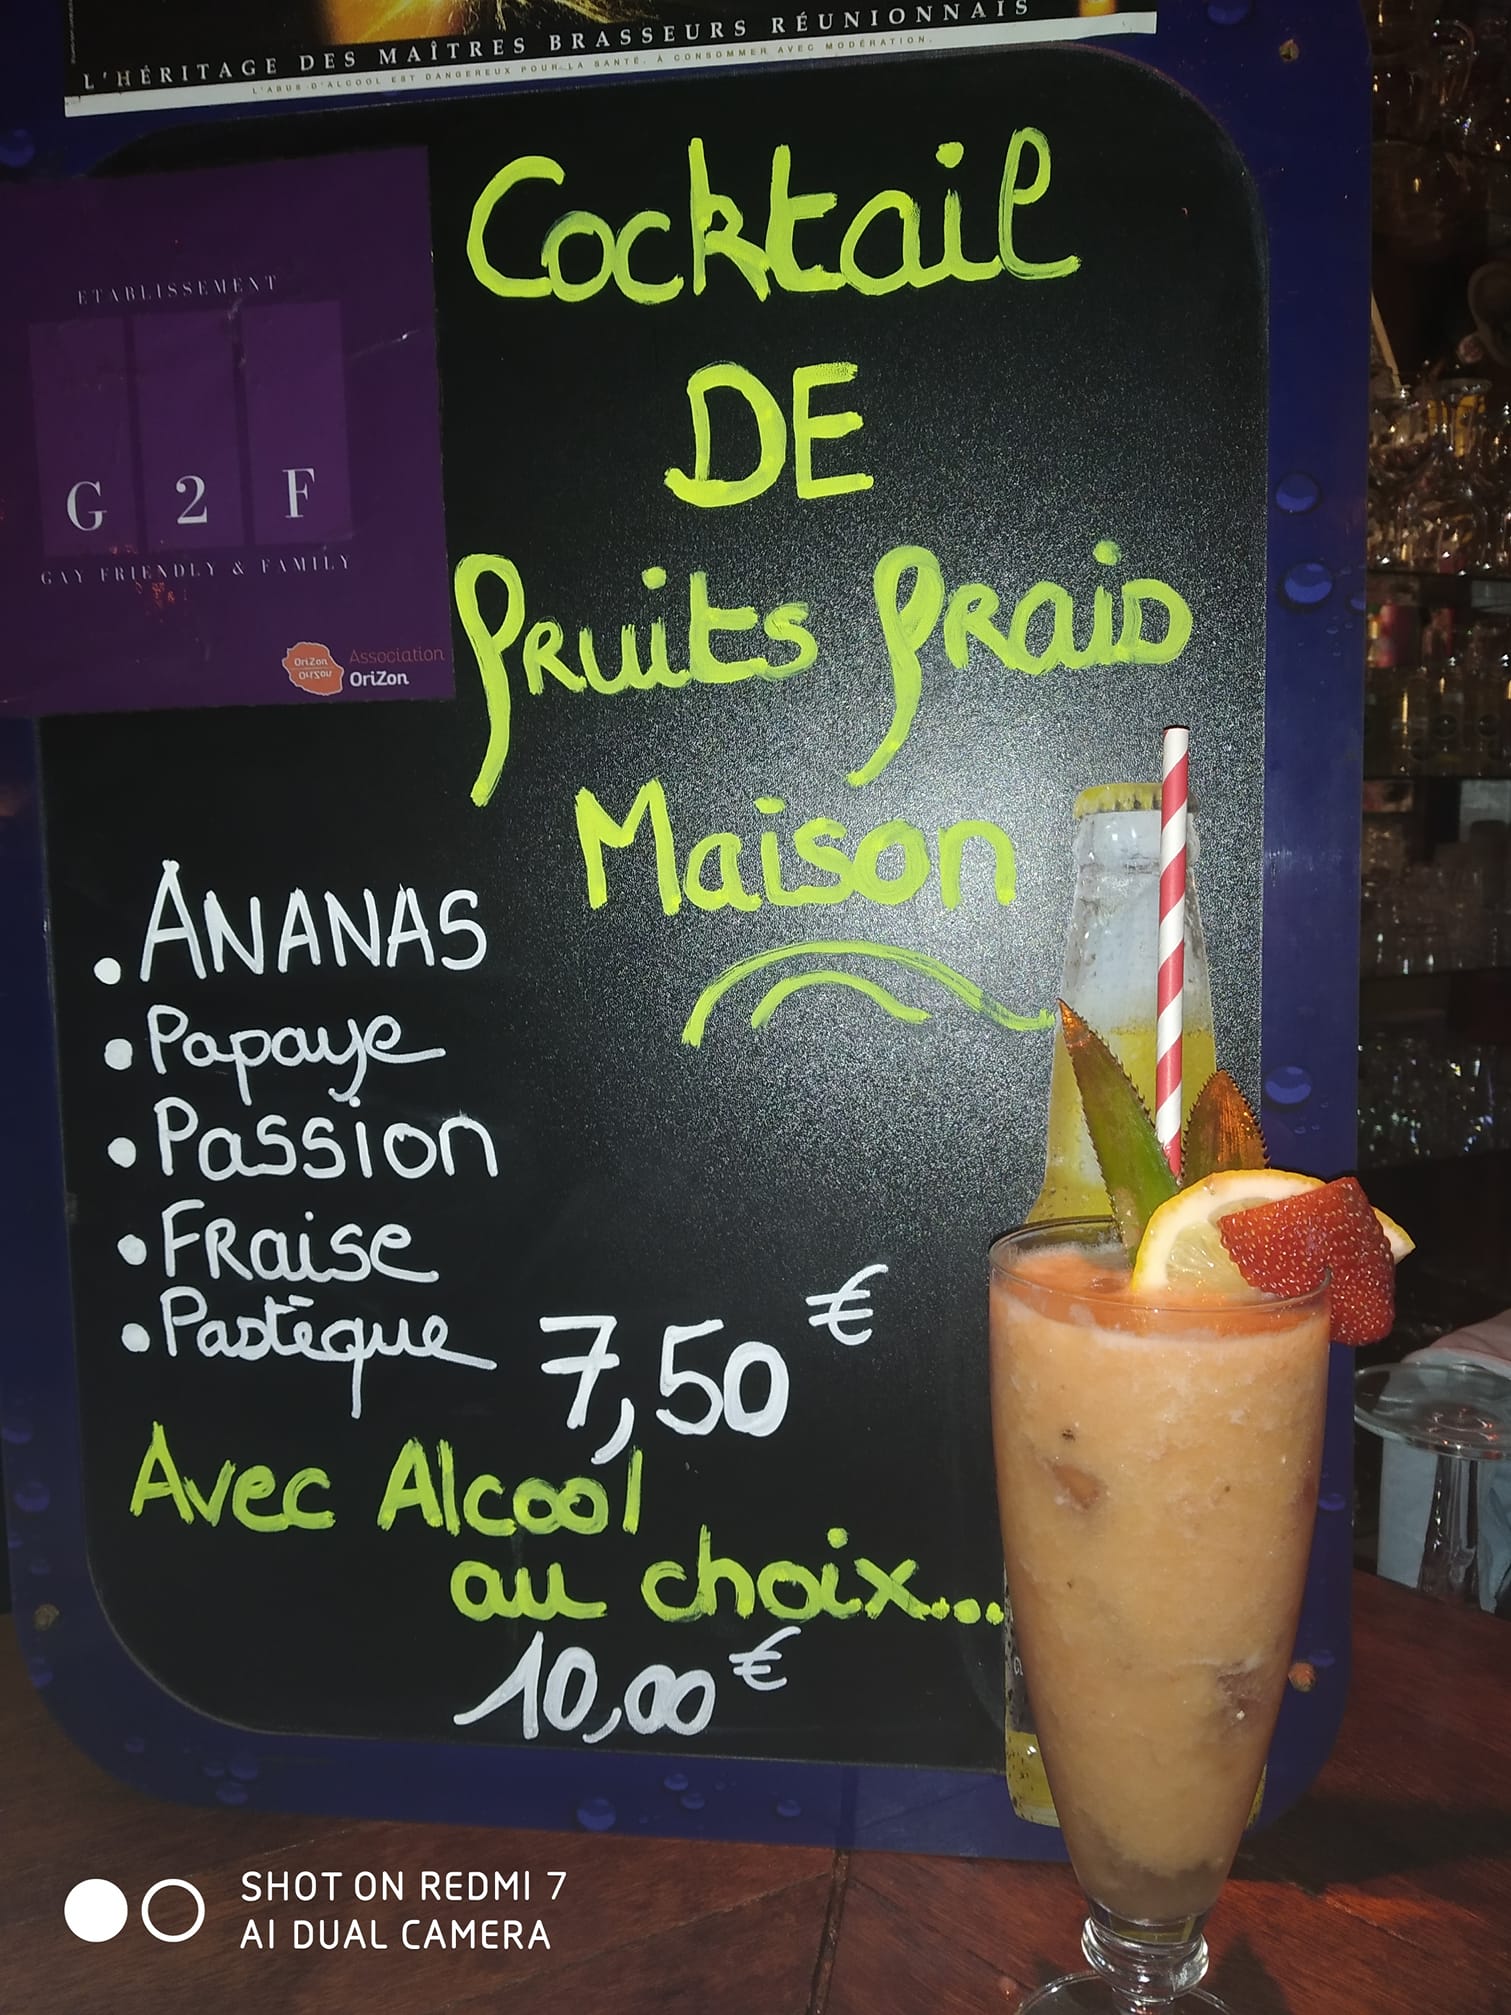 L'HÉRITAGE DES MAÎTRES BRASSEURS RÉUNIONNAIS
L'ABUS D'ALCOOL EST DANGEREUX POUR LA SANTÉ. À CONSOMMER AVEC MODÉRATION.
ETABLISSEMENT
G 2 F
GAY FRIENDLY & FAMILY
OriZon
Association
OriZon
Cocktail
DE
fruits frais
Maison
• ANANAS
• Papaye
• Passion
• FRaise
• Pastèque
7,50 €
Avec Alcool
au choix...
10,00 €
SHOT ON REDMI 7
AI DUAL CAMERA